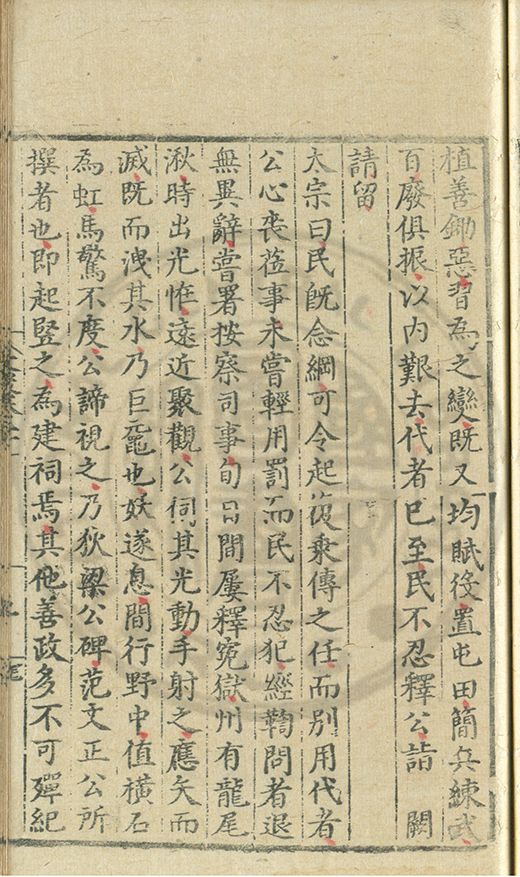 植善鋤惡習為之變既又均賦役置屯田簡兵練武
百廢俱振以内艱去代者已至民不忍釋公詣 闕
請留
太宗曰民旣念綱可令起復乘傳之任而別用代者
公心喪蒞事未嘗輕用罰而民不忍犯經鞫問者退
無異辭嘗署按察司事旬日間屢釋寃獄州有龍尾
湫時出光恠遠近聚觀公祠其光動手射之應矢而
滅既而洩其水乃巨黿也妖遂息間行野中值橫石
為虹馬驚不度公諦視之乃狄梁公碑范文正公所
撰者也即起豎之為建祠焉其他善政多不可殫紀